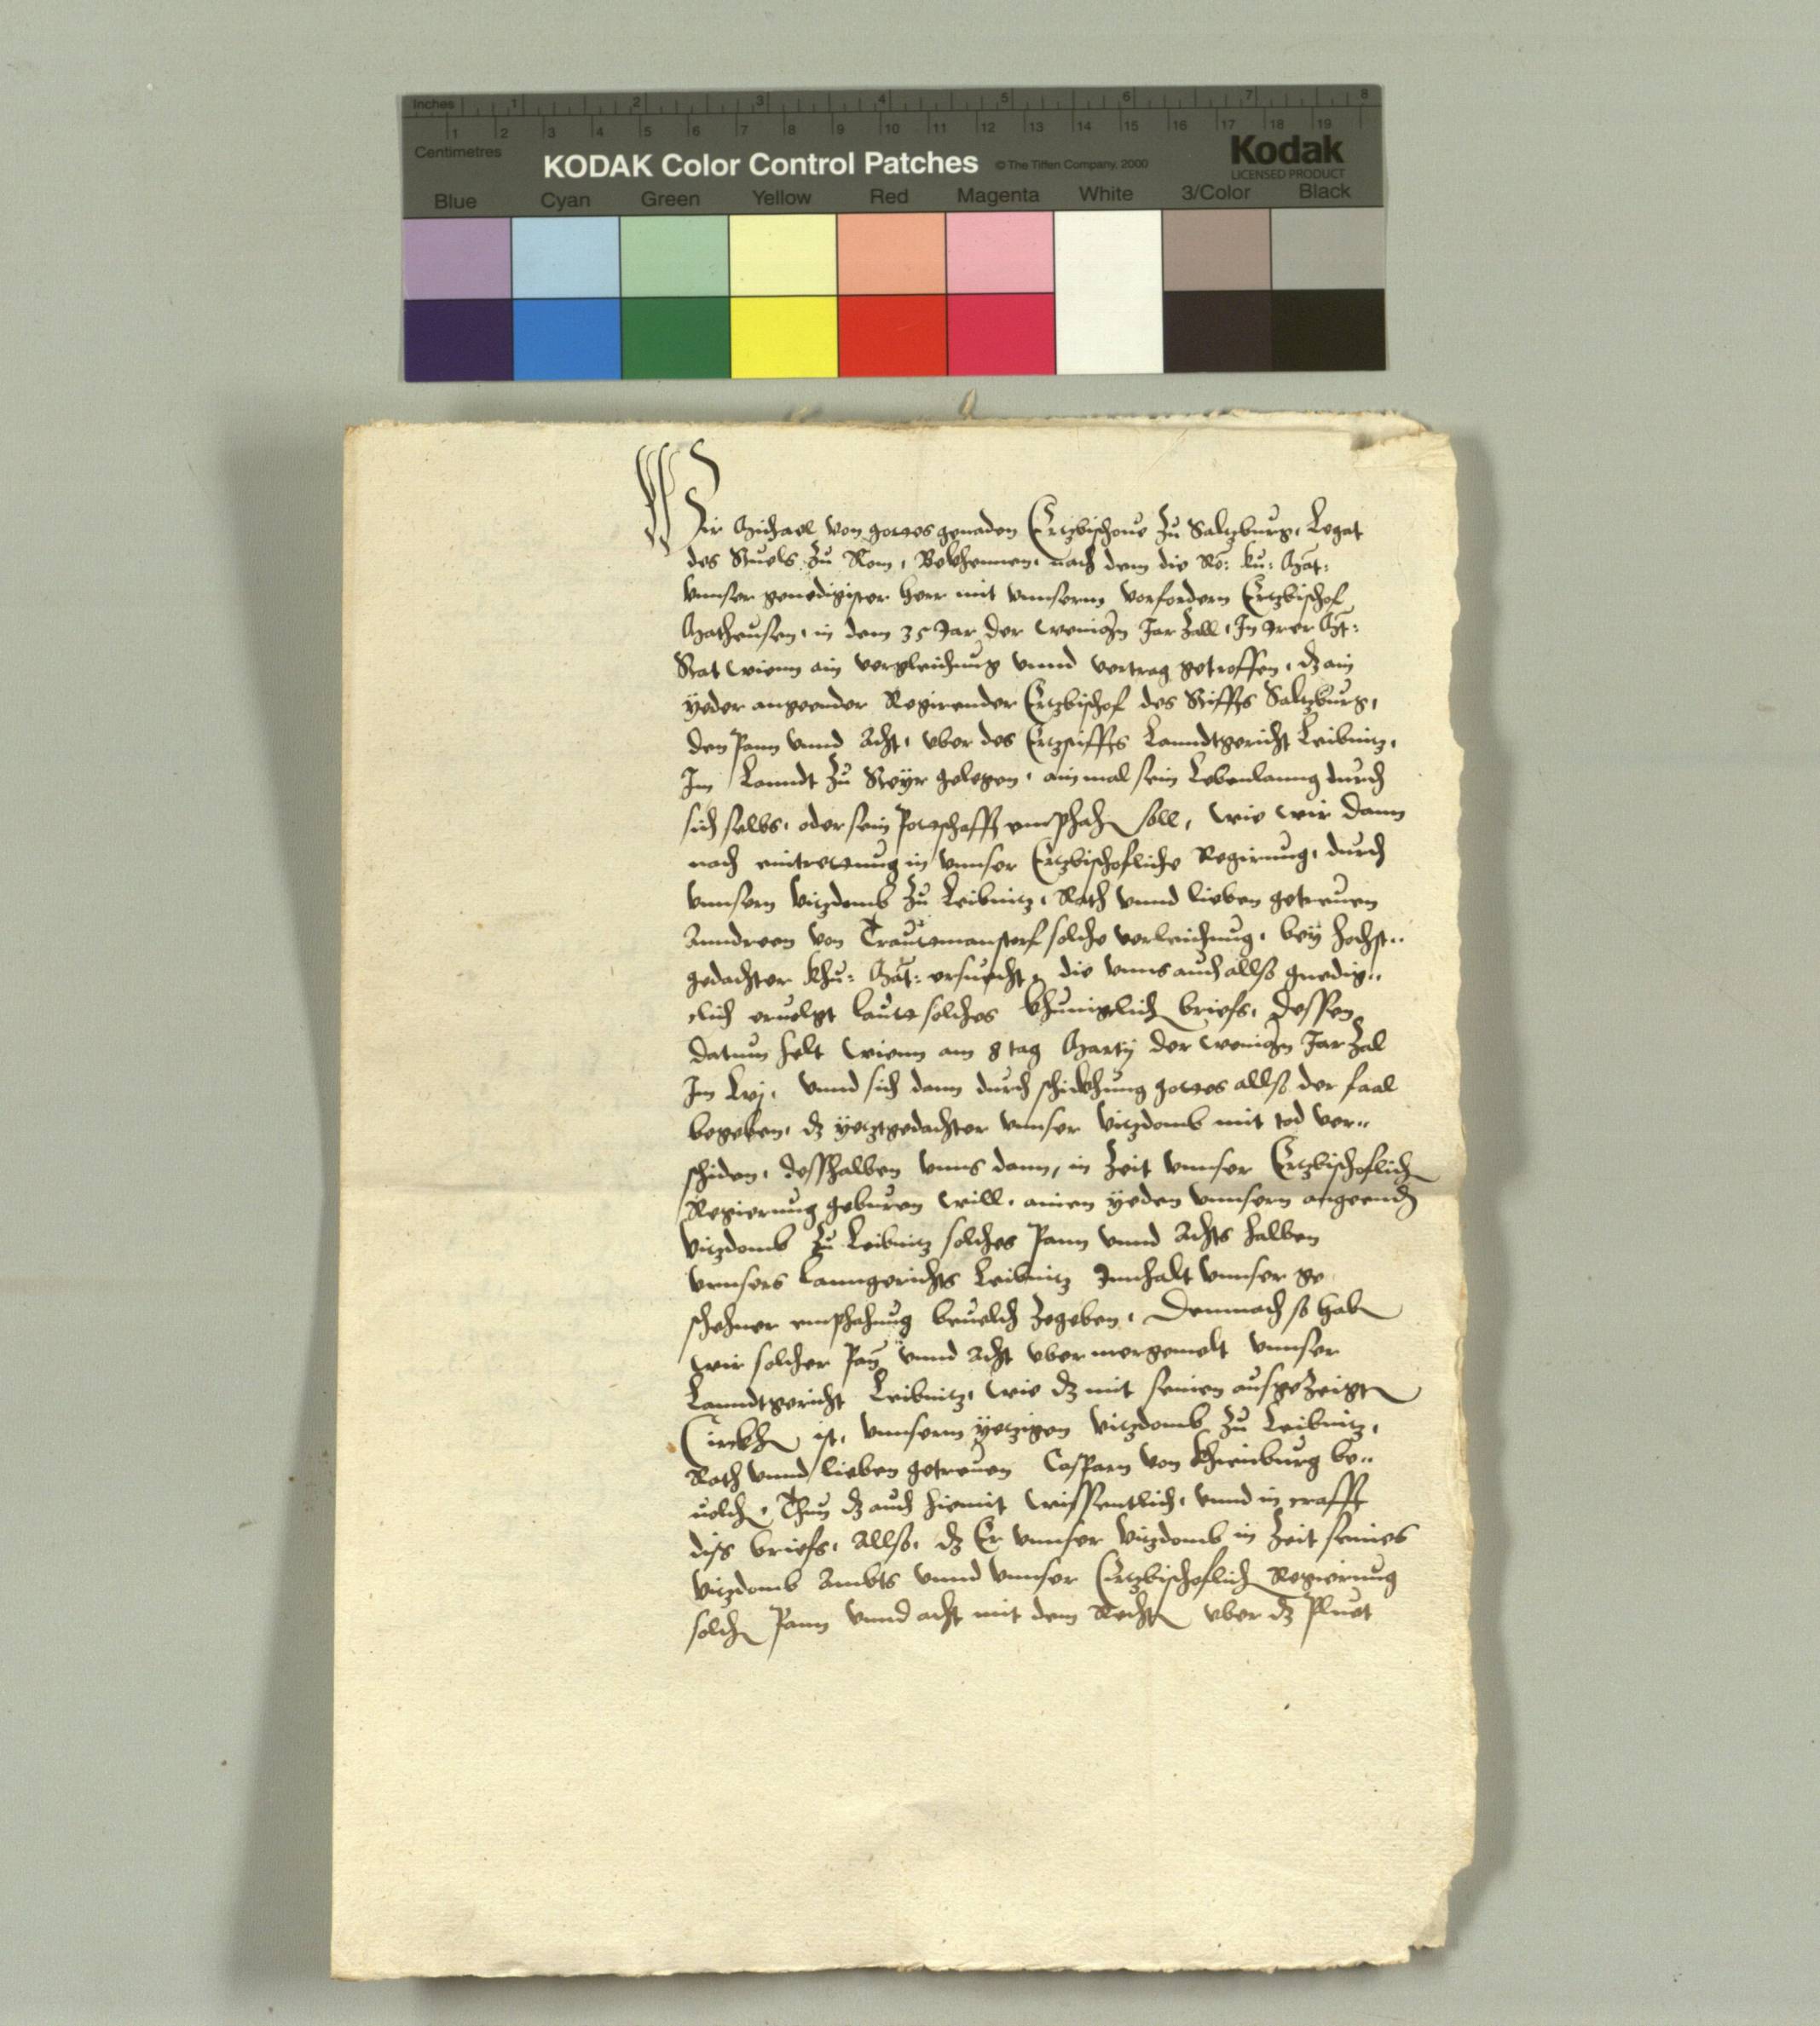 Inches 1 2 3 4 5 6 7 8
1 2 3 4 5 6 7 8 9 10 11 12 13 14 15 16 17 18 19
Centimetres
KODAK Color Control Patches © The Tiffen Company, 2000 Kodak
LICENSED PRODUCT
Blue Cyan Green Yellow Red Magenta White 3/Color Black
Wir Michael von gottes genaden Ertzbischoue zu Saltzburg, Legat
des Stuels zu Rom, Bekhennen, nach dem die Rö: ku: Mat:
vnnser genedigister herr mit vnnserm vorfordern Ertzbischof
Matheusen, in dem 35 Jar der wenigen Jar Zall, In Irer Mt:
Stat Wienn ain vergleichung vnnd vertrag getroffen, dz ain
yeder angeender Regirender Ertzbischof des Stiffts Saltzburg,
den Pann vnnd Acht, vber des Ertzstiffts Lanndtgericht Leibnitz,
Im Lanndt zu Steyr gelegen, ain mal sein Lebenlanng durch
sich selbs, oder sein Pottschafft emphahen soll, wie wir dann
nach eintrettung in vnnser Ertzbischofliche Regirung, durch
vnnsern Vitzdomb zu Leibnitz, Rath vnnd lieben getreuen
Anndreen von Trauttmanstorf solche verleichnug, bey hochst..
gedachter khu: Mat: ersuecht, die vnns auch allso gnedig..
clich eruolgt lautt solches khuniglichen briefs, dessen
datum helt Wienn am 8 tag Marty der wenigen Jar Zal
Im Lvj. vnnd sich dann durch schickhung gottes allso der faal
begeben, dz yetztgedachter vnnser Vitzdomb mit tod ver..
schiden, desshalben vnns dann, in Zeit vnnser Ertzbischoflichen
Regierung geburen will, ainem yeden vnnserm angeenden
Vitzdomb zu Leibnitz solches Pann vnnd Achts halben
vnnsers Lanngerichts Leibnitz Innhalt vnnser ge
schehner emphahung beuelch zegeben, Demnach so haben
wir solcher Pan vnnd Acht vber mergemelt vnnser
Lanndtgericht Leibnitz, wie dz mit seinen ausgezeigten
Circkhen ist, vnnserm yetzigen Vitzdomb zu Leibnitz,
Rath vnnd lieben getreuen Casparn von Khienburg be..
uolchen, Thun dz auch hiemit wissentlich, vnnd in crafft
diss briefs, Allso, dz Er vnnser Vitzdomb in Zeit seines
Vitzdomb Ambts vnnd vnnser Ertzbischoflichen Regierung
solchen Pann vnnd acht mit dem Rechten vber dz Pluet